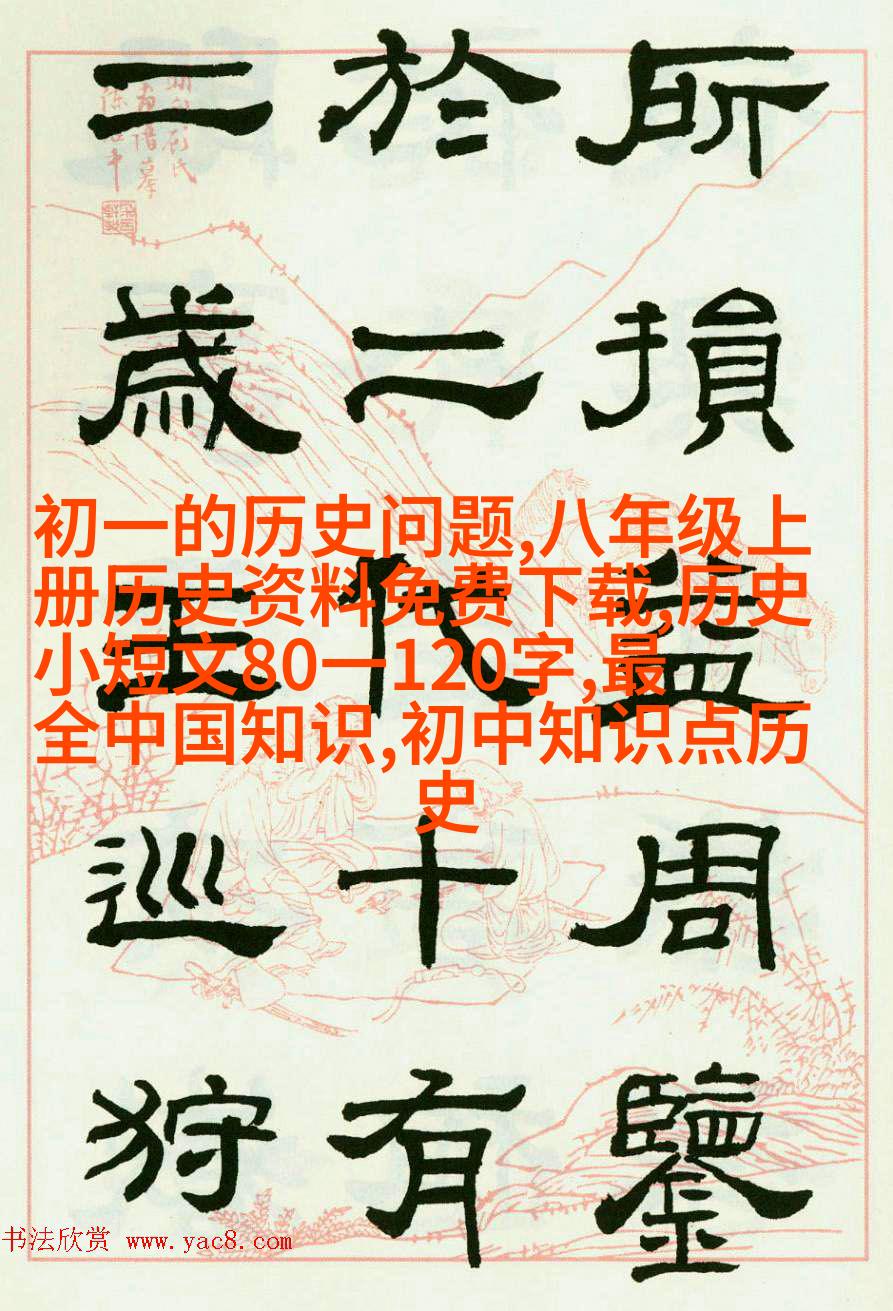 所損益周鑒
於二代十有
二歲王巡狩
初一的历史问题,八年级上
册历史资料免费下载,历史
小短文80一120字,最
全中国知识,初中知识点历
史
书法欣赏 www.yac8.com